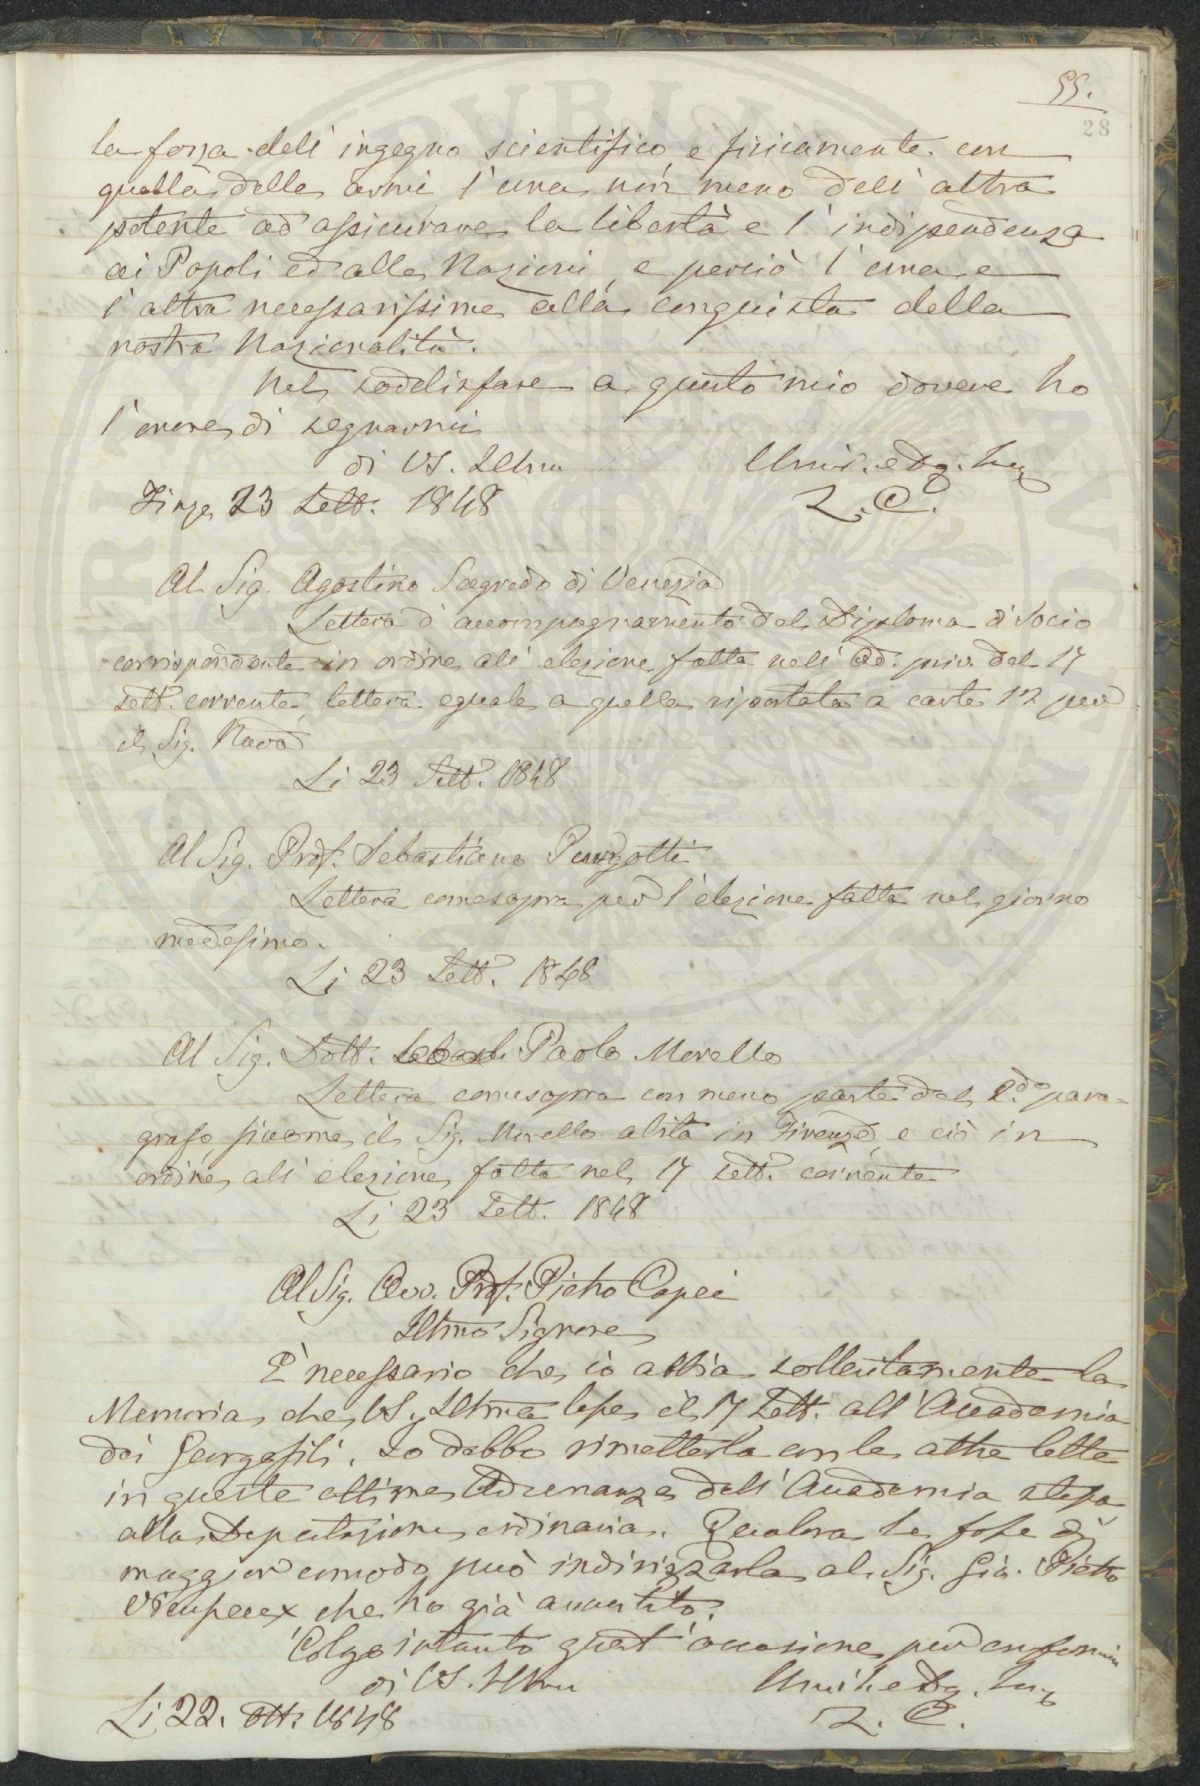 55.
28
la forza dell' ingegno scientifico, e fisicamente con
quella delle armi l' una non meno dell' altra
potente ad assicurare la libertà e l' indipendenza
ai Popoli ed alle Nazioni, e perciò l' una e
l' altra necessarissime alla conquista della
nostra Nazionalità.
Nel soddisfare a questo mio dovere ho
l' onore di segnarmi
di VS. Illma Umil. e Dg. Ser
Firze 23 Sett. 1848 L. C.
Al Sig. Agostino Sagredo di Venezia
Lettera d' accompagnamento del Diploma di Socio
corrispondente in ordine all' elezione fatta nell' Ad. priv. del 17
Sett. corrente, lettera eguale a quella riportata a carte 12 per
il Sig. Nardo
Li 23 Sett. 1848
Al Sig. Prof. Sebastiano Purgotti
Lettera comesopra per l' elezione fatta nel giorno
medesimo.
Li 23 Sett. 1848
Al Sig. Dott. Paolo Morello
Lettera comesopra con meno parte del 2.do para-
grafo siccome il Sig. Morello abita in Firenze e ciò in
ordine all' elezione fatta nel 17 Sett. corrente
Li 23 Sett. 1848
Al Sig. Avv. Prof. Pietro Capei
Illmo Signore
È necessario che io abbia sollecitamente la
Memoria che VS. Illma lesse il 17 Sett. all' Accademia
dei Georgofili. Io debbo rimetterla con le altre lette
in queste ultime Adunanze dell' Accademia stessa
alla Deputazione ordinaria. Qualora le fosse di
maggior comodo può indirizzarla al Sig. Gio. Pietro
Vieusseux che ho già avvertito.
Colgo intanto quest' occasione per confermarmi
di VS. Illma Umil. e Dg. Ser
Li 22. Ott. 1848 L. C.